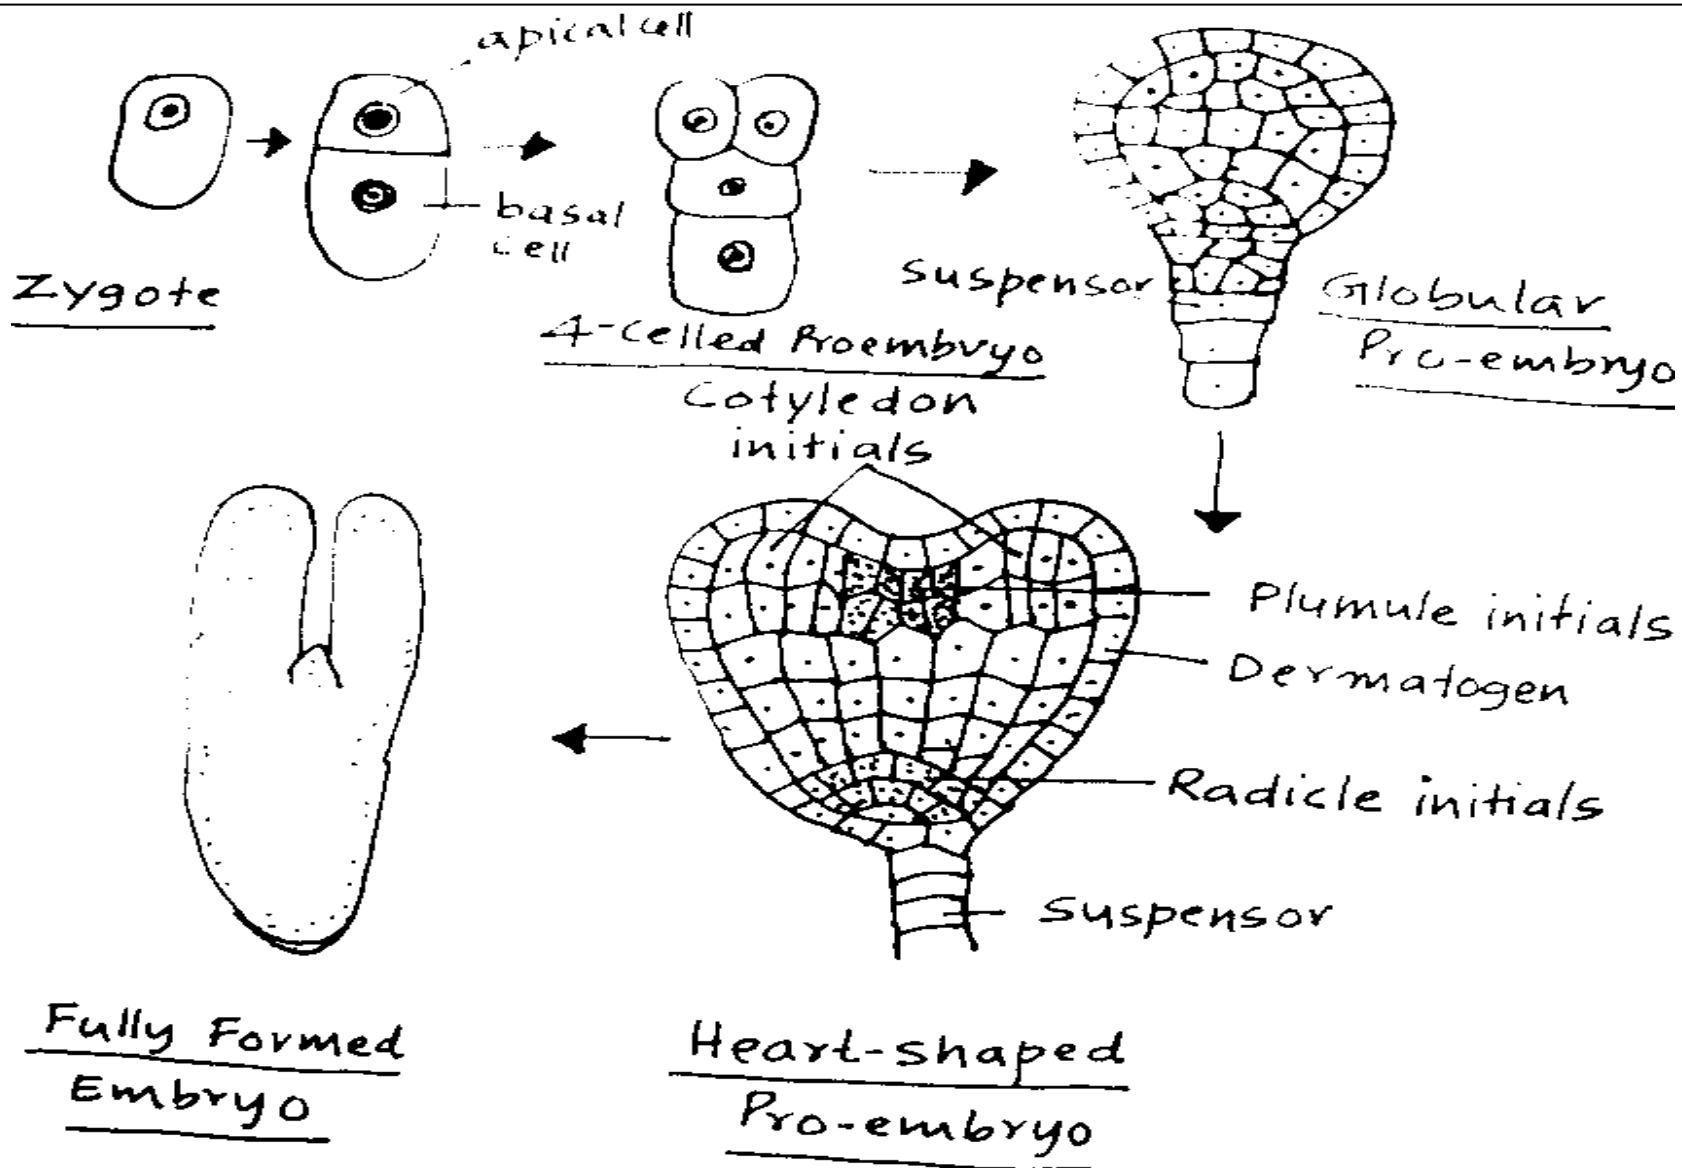 apical cell
basal
cell
Zygote
4-Celled Proembryo
suspensor
Globular
Pro-embryo
Cotyledon
initials
Plumule initials
Dermatogen
Radicle initials
Suspensor
Fully Formed
Embryo
Heart-shaped
Pro-embryo